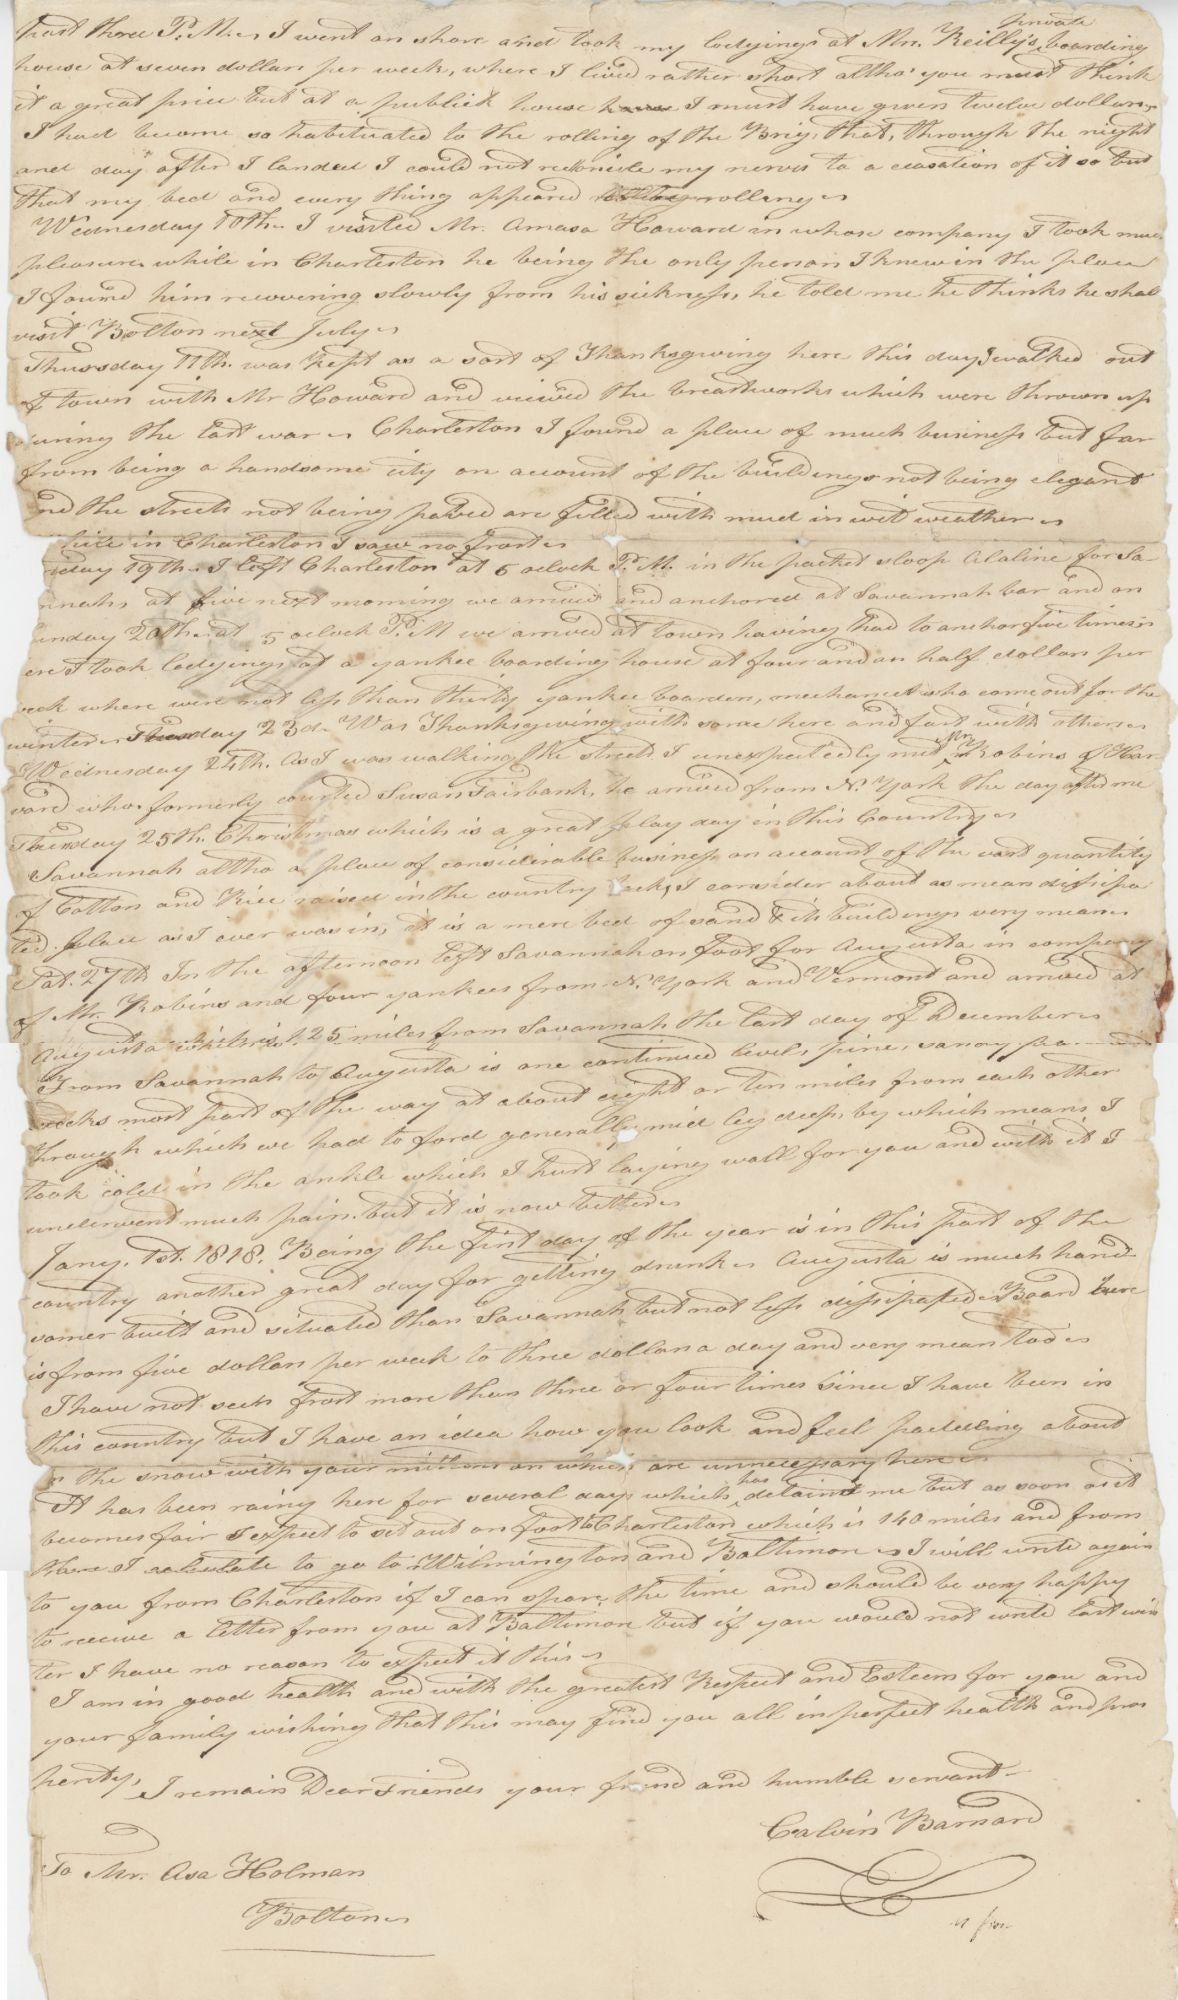 past three P.M. I went on shore and took my lodgings at Mrs. Reilly's private boarding
house at seven dollars per week, where I lived rather short altho' you must think
it a great price but at a publick house I must have given twelve dollars
I had become so habituated to the rolling of the Brig, that, through the night
and day after I landed I could not reconcile my nerves to a cessation of it so but
that my bed and every thing appeared rolling
Wednesday 10th. I visited Mr. Amasa Howard in whose company I took much
pleasure while in Charleston he being the only person I knew in the place
I found him recovering slowly from his sickness, he told me he thinks he shal
visit Bolton next July
Thursday 11th. was kept as a sort of Thanksgiving here this day I walked out
of town with Mr Howard and viewed the breastworks which were thrown up
during the last war Charleston I found a place of much business but far
from being a handsome city on account of the buildings not being elegant
and the streets not being paved are filled with mud in wet weather
while in Charleston I saw no frost
day 19th. I left Charleston at 5 oclock P.M. in the packet sloop Alaline for Sa-
nnah, at five next morning we arrived and anchored at Savannah bar and on
unday 20th. at 5 oclock P.M we arrived at town having had to anchor five times
ere I took lodgings at a yankee boarding house at four and an half dollars per
eek where were not less than thirty yankee boarders, mechanics who come out for the
winter Tuesday 23d. Was Thanksgiving with some here and fast with others
Wednesday 24th. As I was walking the streets I unexpectedly met Mr. Robins of Har
vard who formerly courted Susan Fairbank, he arrived from N. York the day after me
Thursday 25th. Christmas which is a great play day in this Country
Savannah altho a place of considerable business on account of the vast quantity
of Cotton and Rice raised in the country back, I consider about as mean dissipa
ted place as I ever was in, it is a mere bed of sand & its buildings very mean
Sat. 27th In the afternoon left Savannah on foot for Augusta in company
of Mr. Robins and four yankees from N. York and Vermont and arrived at
Augusta which is 125 miles from Savannah the last day of December
From Savannah to Augusta is one continued level, pine, sandy
creeks most part of the way at about eight or ten miles from each other
through which we had to ford generally mid leg deep, by which means I
took cold in the ankle which I hurt laying wall for you and with it I
underwent much pain but it is now better
Jany. 1st. 1818. Being the first day of the year is in this part of the
country another great day for getting drunk Augusta is much hand
somer built and situated than Savannah but not less dissipated Board here
is from five dollars per week to three dollars a day and very mean too
I have not seen frost more than three or four times since I have been in
this country but I have an idea how you look and feel padling about
in the snow with your mittens on which are unnecessary here
It has been rainy here for several days which has detained me but as soon as it
becomes fair I expect to set out on foot to Charleston which is 140 miles and from
there I calculate to go to Wilmington and Baltimore I will write again
to you from Charleston if I can spare the time and should be very happy
to receive a letter from you at Baltimore but if you would not write last win
ter I have no reason to expect it this
I am in good health and with the greatest Respect and Esteem for you and
your family wishing that this may find you all in perfect health and pros
perity, I remain Dear Friends your friend and humble servant
Calvin Barnard
To Mr. Asa Holman
Bolton